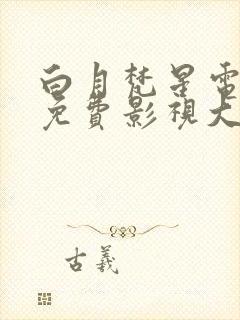 白月梵星電
免費影視大
古義